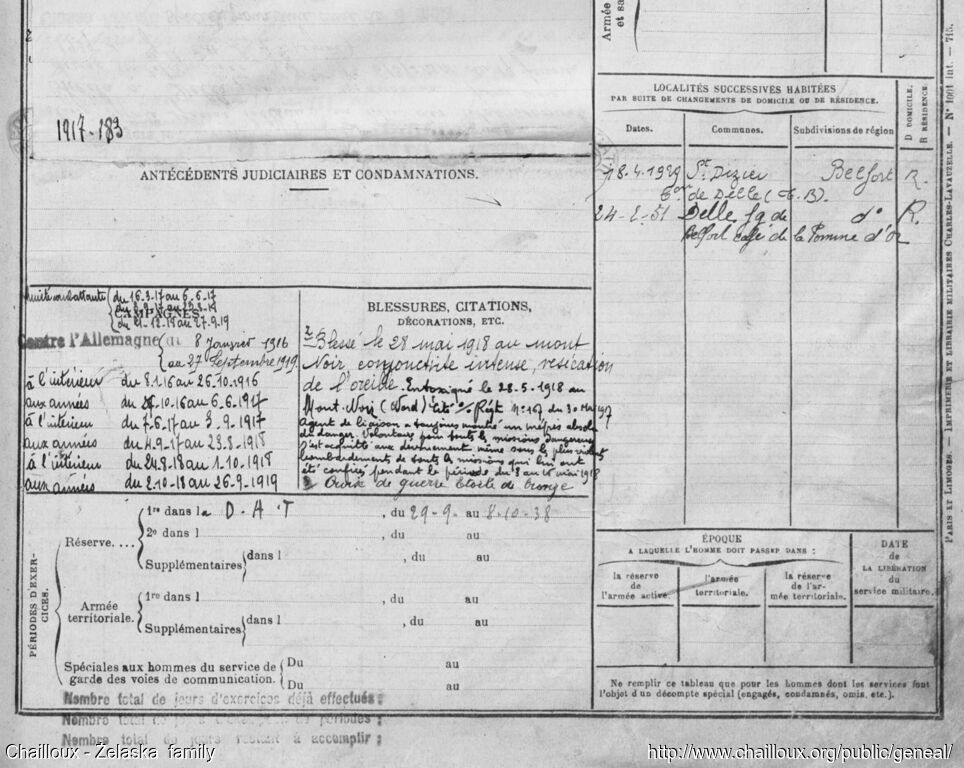 Armée
et sa
LOCALITÉS SUCCESSIVES HABITÉES
PAR SUITE DE CHANGEMENTS DE DOMICILE OU DE RÉSIDENCE.
D DOMICILE.
R RÉSIDENCE.
Dates.
Communes.
Subdivisions de région
18.4.1929 St Dizier Belfort R.
de Delle (T.B)
24-2-51 Delle fg de d° R.
Belfort café de la Pomme d'Or
1917-183
ANTÉCÉDENTS JUDICIAIRES ET CONDAMNATIONS.
CAMPAGNES.
unité combattante du 16.3.17 au 6.6.17
du 21-12-18 au 27-9-19
Contre l'Allemagne du 8 Janvier 1916
au 27 Septembre 1919.
à l'intérieur du 8.1.16 au 26.10.1916
aux armées du 26.10.16 au 6.6.1917
à l'intérieur du 7.6.17 au 3.9.1917
aux armées du 4.9.17 au 23.8.1918
à l'intérieur du 24.8.18 au 1.10.1918
aux armées du 2.10.18 au 26.9.1919
BLESSURES, CITATIONS,
DÉCORATIONS, ETC.
Blessé le 28 mai 1918 au mont
Noir, conjonctivite intense, vésication
de l'oreille. Intoxiqué le 28.5.1918 au
Mont-Noir (Nord) Cité o/ Régt N° 167 du 30 Mai
Agent de liaison a toujours montré un mépris absolu
du danger. Volontaire pour toutes les missions dangereuses
s'est acquitté avec dévouement même sous les plus violents
bombardements de toutes les missions qui lui ont
été confiées pendant la période du 8 au mai 1918
Croix de guerre étoile de bronze
PÉRIODES D'EXERCICES.
Réserve....
1re dans la D.A.T , du 29-9- au 8-10-38
2e dans l , du au
Supplémentaires dans l , du au
Armée
territoriale.
1re dans l , du au
Supplémentaires dans l , du au
Spéciales aux hommes du service de
garde des voies de communication.
Du au
Du au
Nombre total de jours d'exercices déjà effectués :
Nombre total de jours périodes :
Nombre total de jours restant à accomplir :
ÉPOQUE
A LAQUELLE L'HOMME DOIT PASSER DANS :
la réserve
de l'armée active.
l'armée
territoriale.
la réserve
de l'armée territoriale.
DATE
de
LA LIBÉRATION
du
service militaire.
Ne remplir ce tableau que pour les hommes dont les services font
l'objet d'un décompte spécial (engagés, condamnés, omis, etc.).
PARIS ET LIMOGES. — IMPRIMERIE ET LIBRAIRIE MILITAIRES CHARLES-LAVAUZELLE. — N° 1001 int. — 715.
Chailloux - Zelaska family
http://www.chailloux.org/public/geneal/